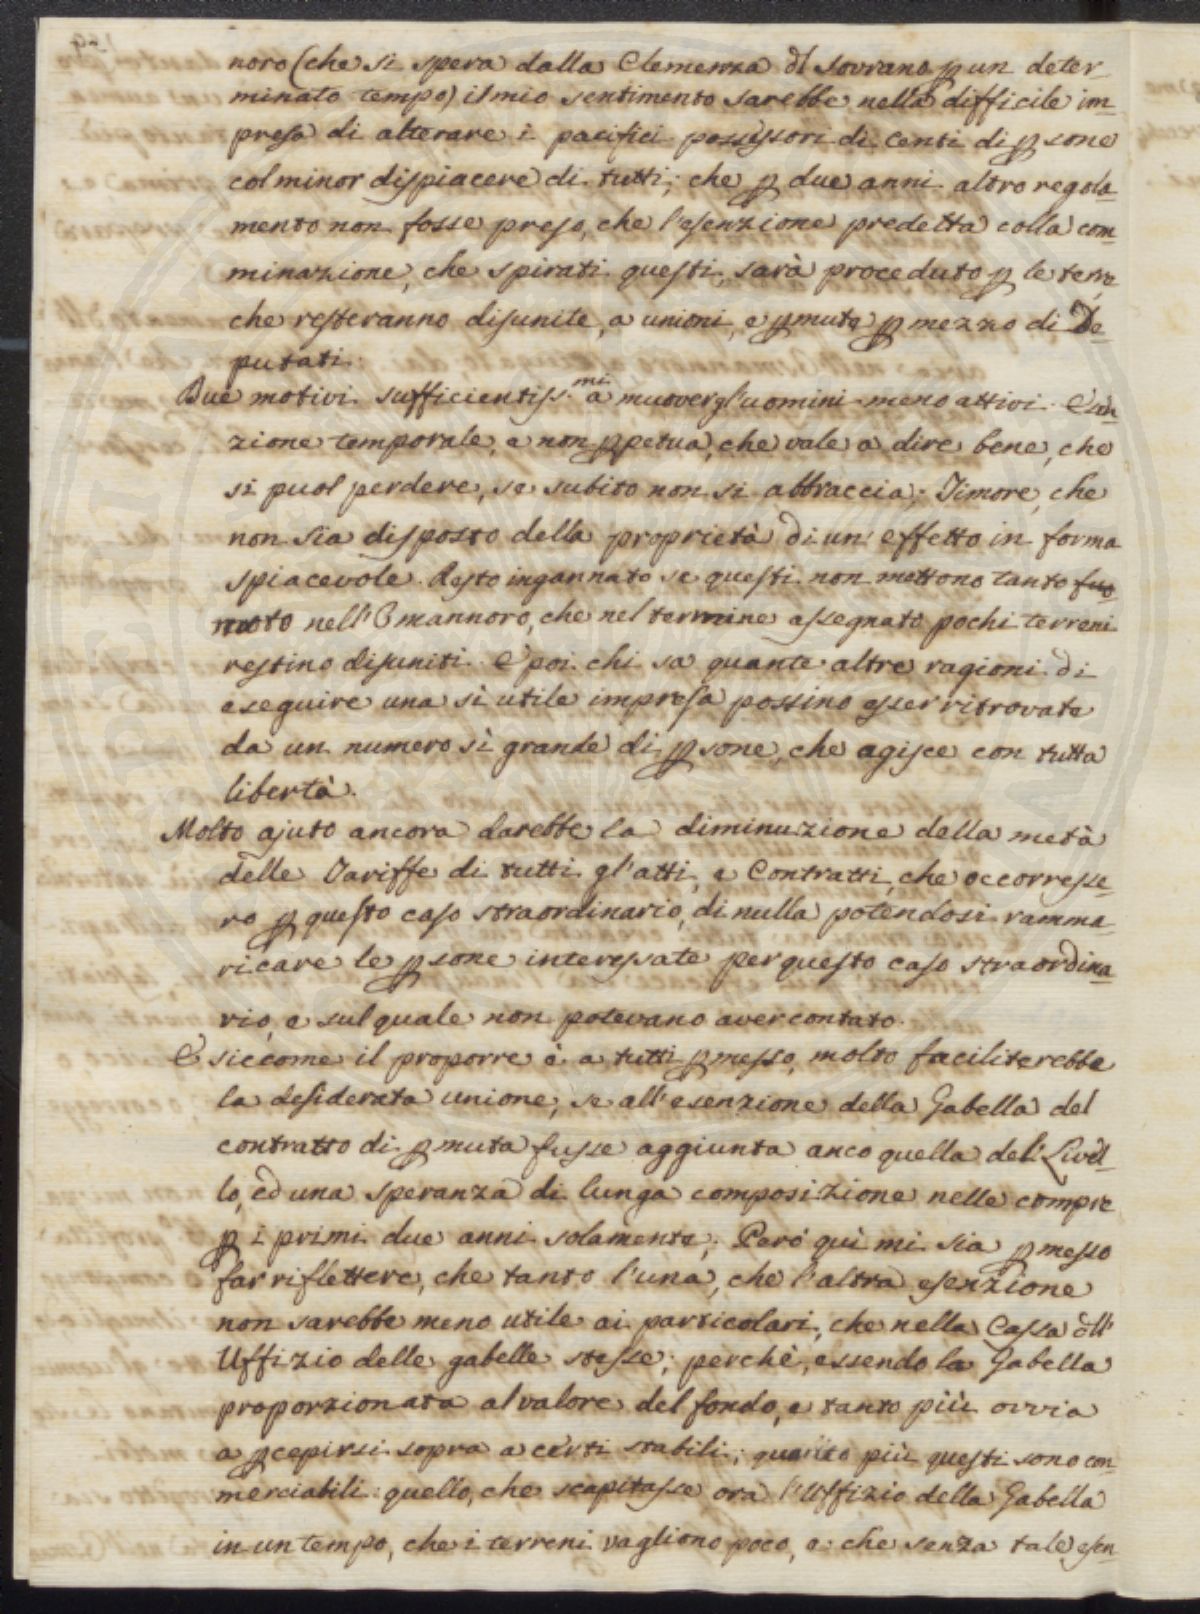 noro (che si spera dalla Clemenza dl Sovrano p un deter-
minato tempo) il mio sentimento sarebbe nella difficile im-
presa di alterare i pacifici possessori di Centi di psone
col minor dispiacere di tutti; che p due anni altro regola-
mento non fosse preso, che l'esenzione predetta colla com-
minazione, che spirati questi, sarà proceduto p le terre,
che resteranno disunite, a unioni, e pmute p mezzo di De-
putati.
Due motivi sufficientiss.mi a muover gl'uomini meno attivi. Esen-
zione temporale, e non ppetua, che vale a dire bene, che
si puol perdere, se subito non si abbraccia; Timore, che
non sia disposto della proprietà di un' effetto in forma
spiacevole. Resto ingannato se questi non mettono tanto fuo
moto nell'Osmannoro, che nel termine assegnato pochi terreni
restino disuniti. E poi chi sa quante altre ragioni di
eseguire una sì utile impresa possino esser ritrovate
da un numero sì grande di psone, che agisce con tutta
libertà.
Molto ajuto ancora darebbe la diminuzione della metà
delle Tariffe di tutti gl'atti, e Contratti, che occorresse-
ro p questo caso straordinario, di nulla potendosi ramma-
ricare le psone interessate per questo caso straordina-
rio, e sul quale non potevano aver contato.
E siccome il proporre è a tutti pmesso, molto faciliterebbe
la desiderata unione, se all'esenzione della Gabella del
contratto di pmuta fusse aggiunta anco quella del Livel-
lo, ed una speranza di lunga composizione nelle compre
p i primi due anni solamente; Però quì mi sia pmesso
far riflettere, che tanto l'una, che l'altra esenzione
non sarebbe meno utile ai particolari, che nella Cassa dll'
Uffizio delle gabelle stesse; perchè, essendo la Gabella
proporzionata al valore del fondo, e tanto più ovvia
a pcepirsi sopra a certi stabili; quanto più questi sono com-
merciabili: quello, che scapitasse ora l'Uffizio della Gabella
in un tempo, che i terreni vagliono poco, e che senza tale esen-